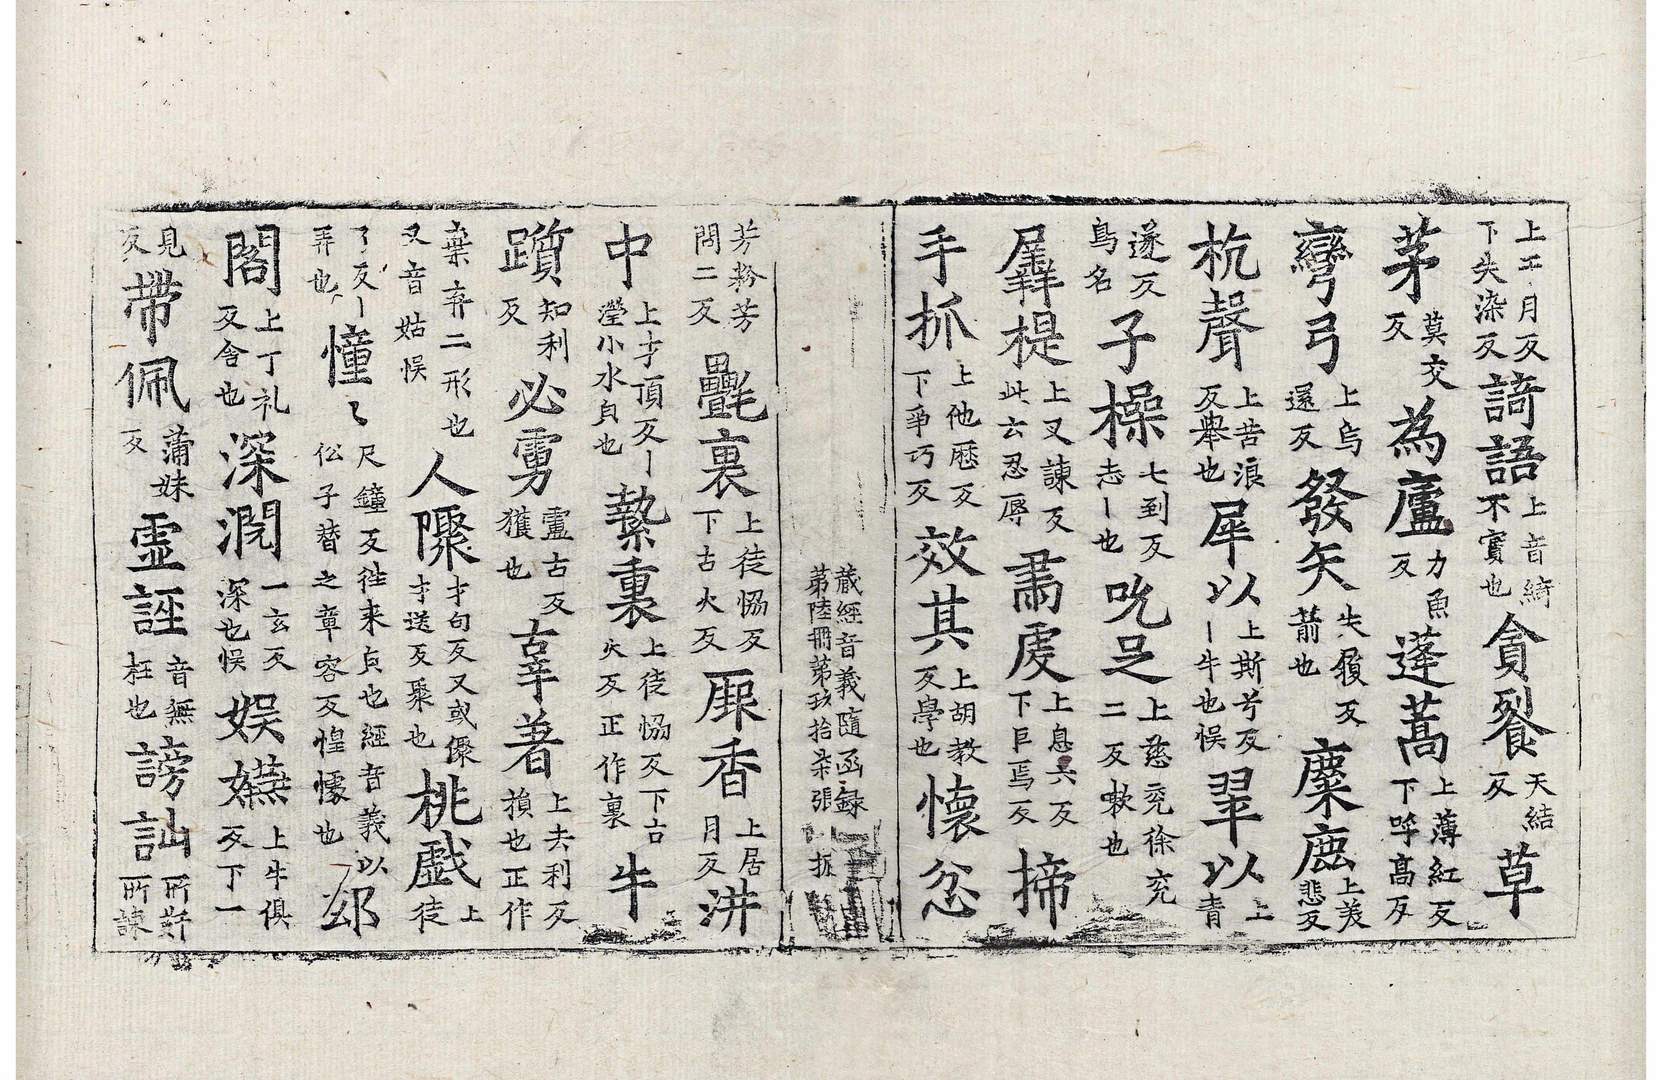 上王月反下失染反諳語上音綺不實也貪飻天結反草
茅莫交反為廬力魚反蓬蒿上薄紅反下呼高反
彎弓上烏還反發矢失履反箭也麋鹿上美悲反
杭聲上苦浪反舉也犀以上斯兮反丨牛也悞翠以上青
遂反鳥名子操七到反志丨也吮足上慈兖徐兖二反嗽也
羼提上叉諫反此云忍辱肅虔上息六反下巨焉反揥
手抓上他曆反下爭巧反效其上胡教反學也懷忿
藏經音義隨函録第陸冊第玖拾柒張
芳粉芳問二反氎裹上徒恊反下古火反厩香上居月反汫
中上才頂反丨瀅小水皃也縶裹上徒恊反下古火反正作裹牛
躓知利反必虜靈古反獲也棄著上去利反損也正作
棄弃二形也又音姑悞人驟才句反又或儤才送反聚也桃戯上徒
了反丨弄也憧〻尺鐘反徃来皃也經音義以伀子替之章容反惶懅也邠
閣上丁礼反舎也深㴋一玄反深也悞娱嬿上牛俱反下一
見反帶佩蒲妹反霊誣音無枉也謗訕所姧所諫